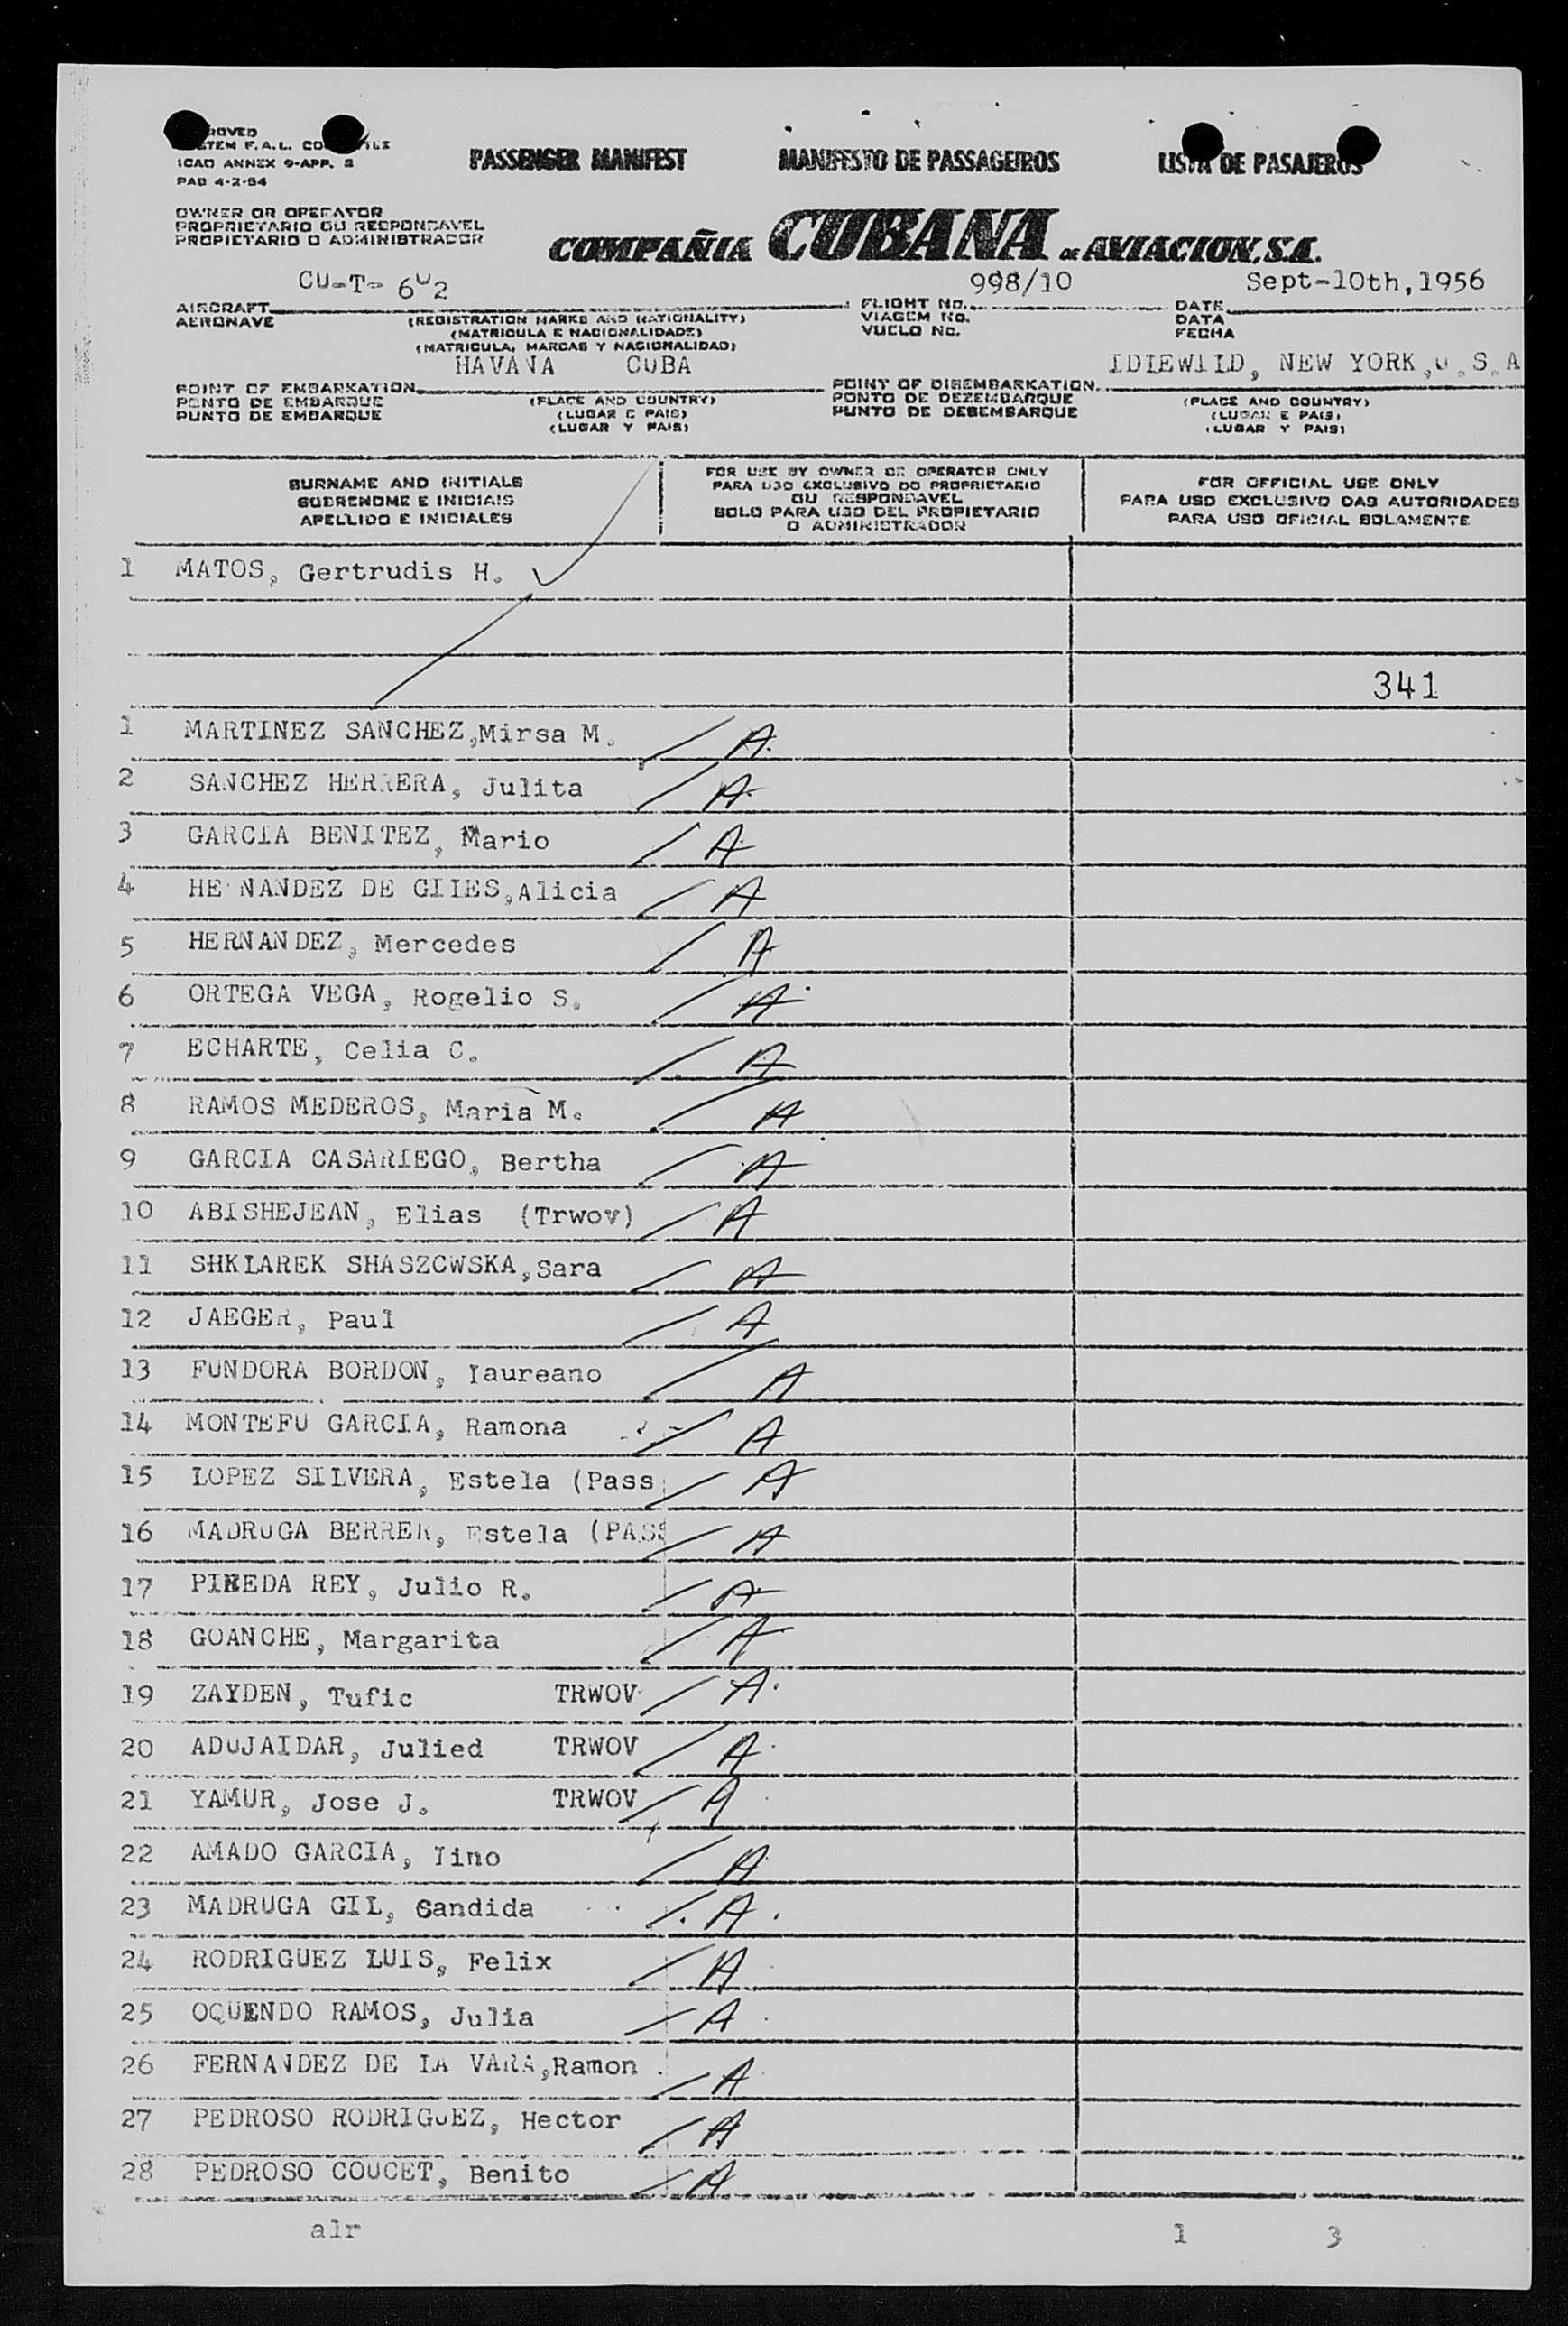 ROVED
TEM F.A.L. CO
ICAO ANNEX 9-APP. 2
PAB 4-2-54
PASSENGER MANIFEST MANIFESTO DE PASSAGEIROS LISTA DE PASAJEROS
OWNER OR OPERATOR
PROPRIETARIO OU RESPONSAVEL
PROPIETARIO O ADMINISTRADOR
COMPAÑIA CUBANA DE AVIACION, S.A.
CU-T- 602 998/10 Sept-10th,1956
AIRCRAFT FLIGHT No. DATE
AERONAVE (REGISTRATION MARKS AND NATIONALITY) VIAGEM No. DATA
(MATRICULA E NACIONALIDADE) VUELO No. FECHA
(MATRICULA, MARCAS Y NACIONALIDAD)
HAVANA CUBA IDIEWIID, NEW YORK,U.S.A
POINT OF EMBARKATION POINT OF DISEMBARKATION
PONTO DE EMBARQUE (PLACE AND COUNTRY) PONTO DE DEZEMBARQUE (PLACE AND COUNTRY)
PUNTO DE EMBARQUE (LUGAR E PAIS) PUNTO DE DESEMBARQUE (LUGAR E PAIS)
(LUGAR Y PAIS) (LUGAR Y PAIS)
SURNAME AND INITIALS
SOBRENOME E INICIAIS
APELLIDO E INICIALES
FOR USE BY OWNER OR OPERATOR ONLY
PARA USO EXCLUSIVO DO PROPRIETARIO
OU RESPONSAVEL
SOLO PARA USO DEL PROPIETARIO
O ADMINISTRADOR
FOR OFFICIAL USE ONLY
PARA USO EXCLUSIVO DAS AUTORIDADES
PARA USO OFICIAL SOLAMENTE
1 MATOS, Gertrudis H.
341
1 MARTINEZ SANCHEZ,Mirsa M. A.
2 SANCHEZ HERRERA, Julita A
3 GARCIA BENITEZ, Mario A
4 HE NANDEZ DE GIIES,Alicia A
5 HERNANDEZ, Mercedes A
6 ORTEGA VEGA, Rogelio S. A
7 ECHARTE, Celia C. A
8 RAMOS MEDEROS, Maria M. A
9 GARCIA CASARIEGO, Bertha A
10 ABISHEJEAN, Elias (Trwov) A
11 SHKLAREK SHASZOWSKA,Sara A
12 JAEGER, Paul A
13 FUNDORA BORDON, Iaureano A
14 MONTEFU GARCIA, Ramona A
15 LOPEZ SILVERA, Estela (Pass A
16 MADRUGA BERRER, Estela (PASS A
17 PINEDA REY, Julio R. A
18 GOANCHE, Margarita A
19 ZAYDEN, Tufic TRWOV A
20 ADUJAIDAR, Julied TRWOV A
21 YAMUR, Jose J. TRWOV A
22 AMADO GARCIA, Iino A
23 MADRUGA GIL, Candida A
24 RODRIGUEZ LUIS, Felix A
25 OQUENDO RAMOS, Julia A
26 FERNANDEZ DE LA VARA,Ramon A
27 PEDROSO RODRIGUEZ, Hector A
28 PEDROSO COUCET, Benito A
alr 1 3